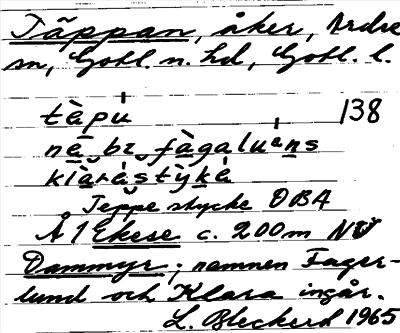 Täppan, åker, Ardre
sn, Gotl. n. hd, Gotl. l.
tä̀pu 138
nę bɪ fàgaluns
klàràstỳkè
Teppe stycke ÖBA
Å 1 Ekese c. 200 m NV
Dammyr; namnen Fager-
lund och Klara ingår.
L. Bleckerd 1965